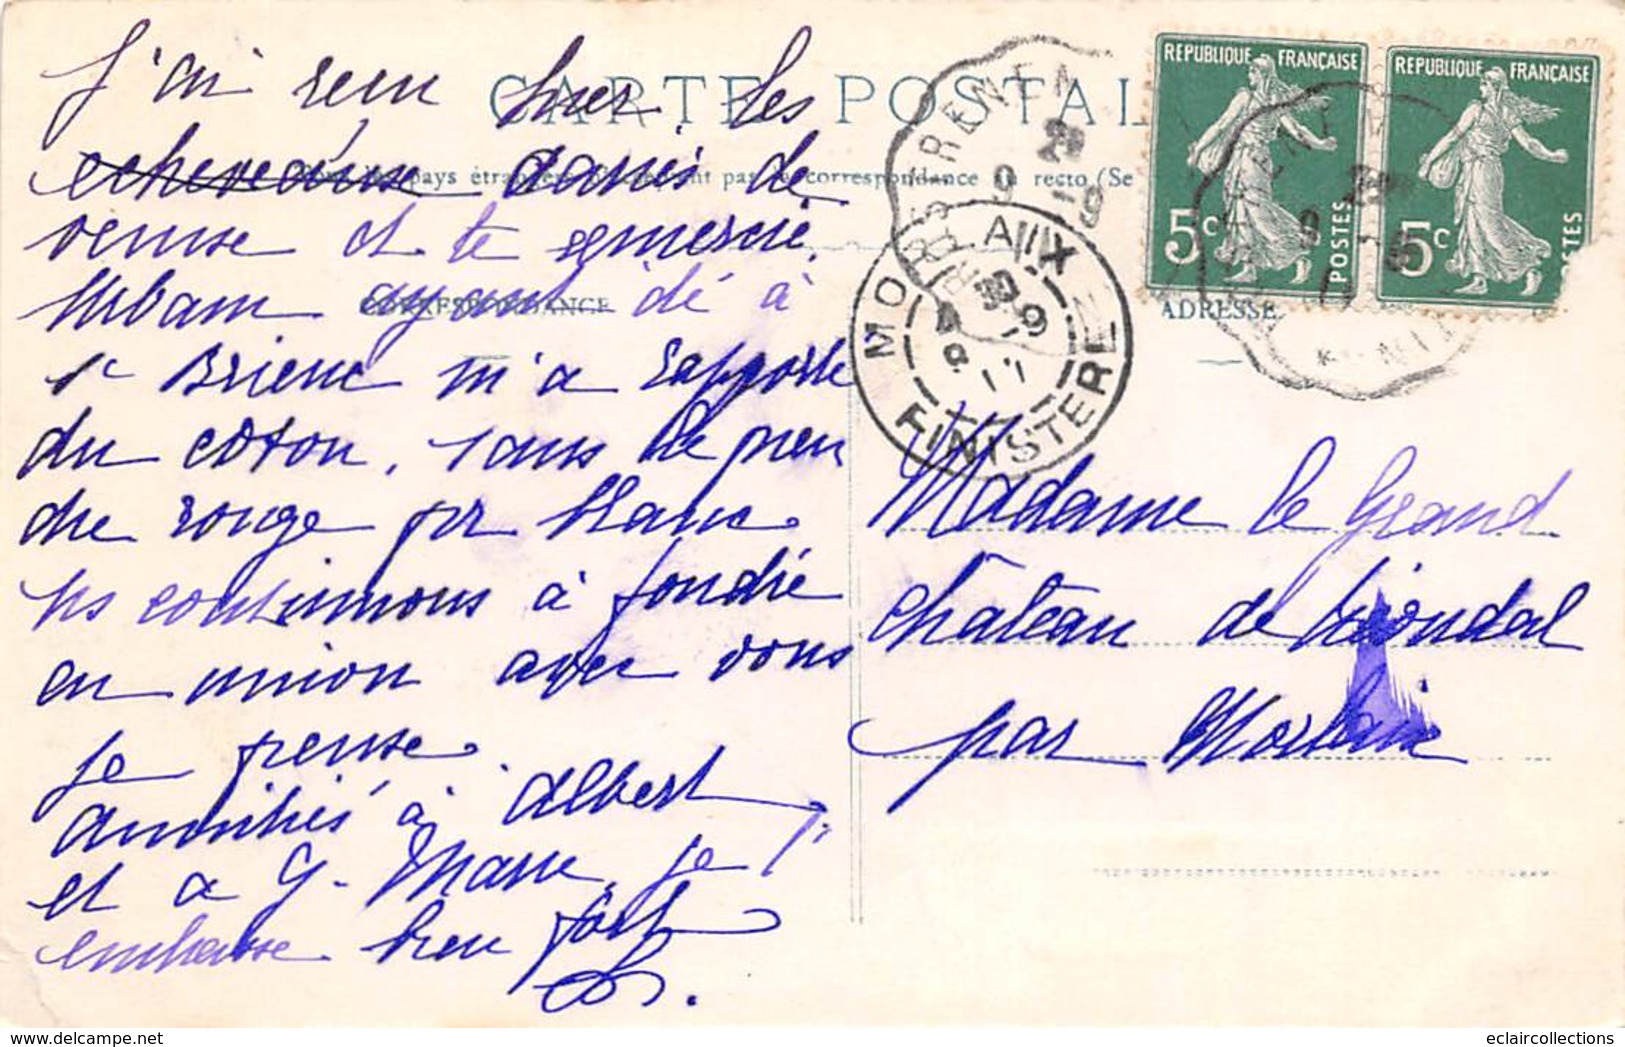 J'ai reçu hier les
echeveaux danis de
venise et te remercie.
Urbain ayant dé à
St Brieuc m'a rapporté
du coton, sans le pren
dre rouge pr blanc
ns continuons à fondre
en union avec vous
je pense.
amitiés à Albert
et a G. Marie, je t'
embrasse bien fort
CARTE POSTALE
pays étrangers pas la correspondance au recto (Se
CORRESPONDANCE
ADRESSE
REPUBLIQUE FRANÇAISE
5c POSTES
REPUBLIQUE FRANÇAISE
5c POSTES
MORLAIX
FINISTERE
Madame le Grand
château de
par Morlaix
eclaircollections